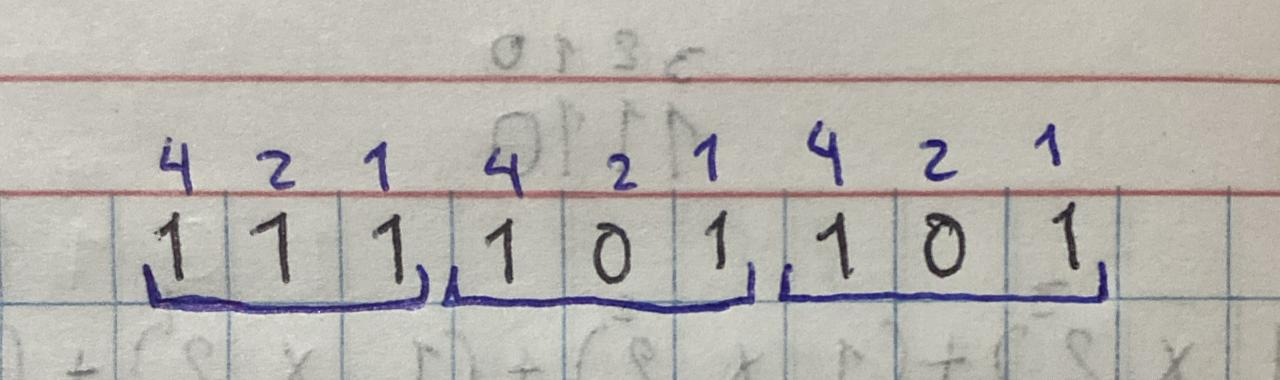 4 2 1 4 2 1 4 2 1
1 1 1 1 0 1 1 0 1